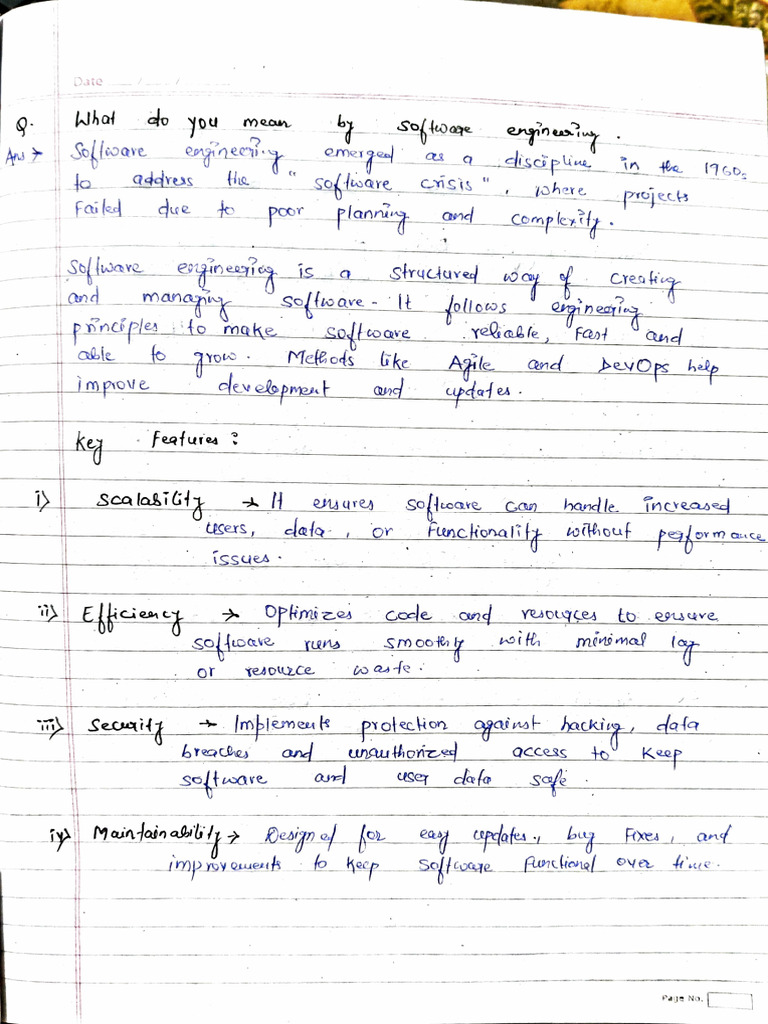 Date
Q. What do you mean by software engineering.
Ans → Software engineering emerged as a discipline in the 1960s
to address the "software crisis", where projects
Failed due to poor planning and complexity.
Software engineering is a structured way of creating
and managing software. It follows engineering
principles to make software reliable, fast and
able to grow. Methods like Agile and DevOps help
improve development and updates.
Key Features:
i) Scalability → It ensures software can handle increased
users, data, or functionality without performance
issues.
ii) Efficiency → Optimizes code and resources to ensure
software runs smoothly with minimal lag
or resource waste.
iii) Security → Implements protection against hacking, data
breaches and unauthorized access to keep
software and user data safe.
iv) Maintainability → Designed for easy updates, bug fixes, and
improvements to keep software functional over time.
Page No.